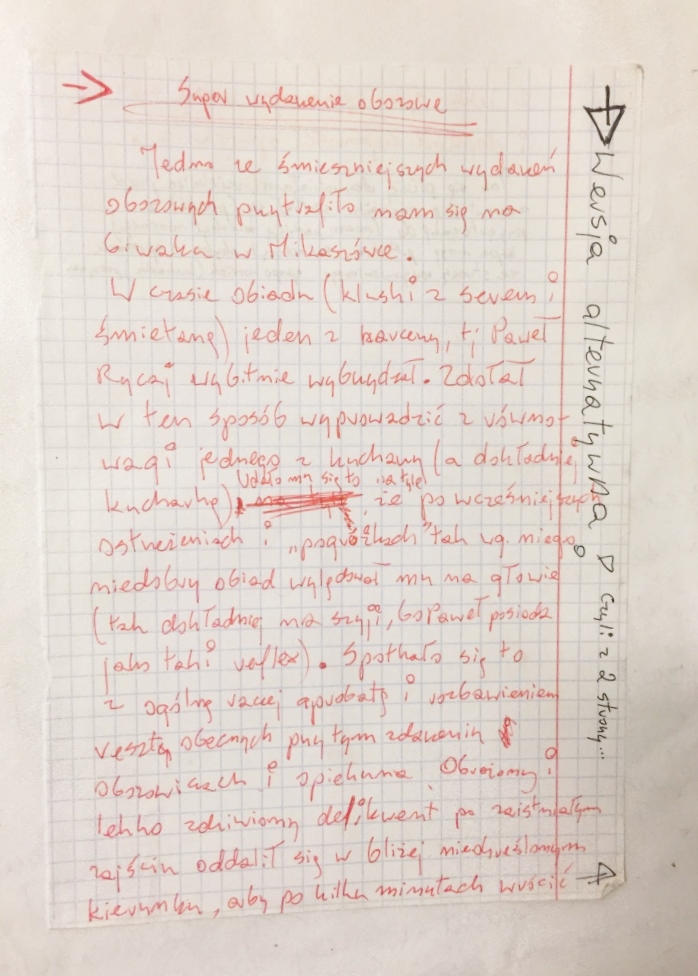 → Super wydarzenie obozowe
Jedno ze śmieszniejszych wydarzeń
obozowych przytrafiło nam się na
biwaku w Mikaszówce.
W czasie obiadu (kluski z serem i
śmietaną) jeden z harcerzy, tj Paweł
Rycaj wybitnie wybrzydzał. Zdołał
w ten sposób wyprowadzić z równo-
wagi jednego z kucharzy (a dokładniej
kucharkę) Udało mu się to na tyle
, że po wcześniejszych
ostrzeżeniach i „pogróżkach" tak wg. niego
niedobry obiad wylądował mu na głowie
(tak dokładniej na szyji, bo Paweł posiada
jako taki reflex). Spotkało się to
z ogólną raczej aprobatą i rozbawieniem
resztą obecnych przy tym zdarzeniu
obozowiczach i opiekuna. Obrażony i
lekko zdziwiony delikwent po zaistniałym
zajściu oddalił się w bliżej nieokreślonym
kierunku, aby po kilku minutach wrócić
Wersja alternatywna czyli z 2 strony...